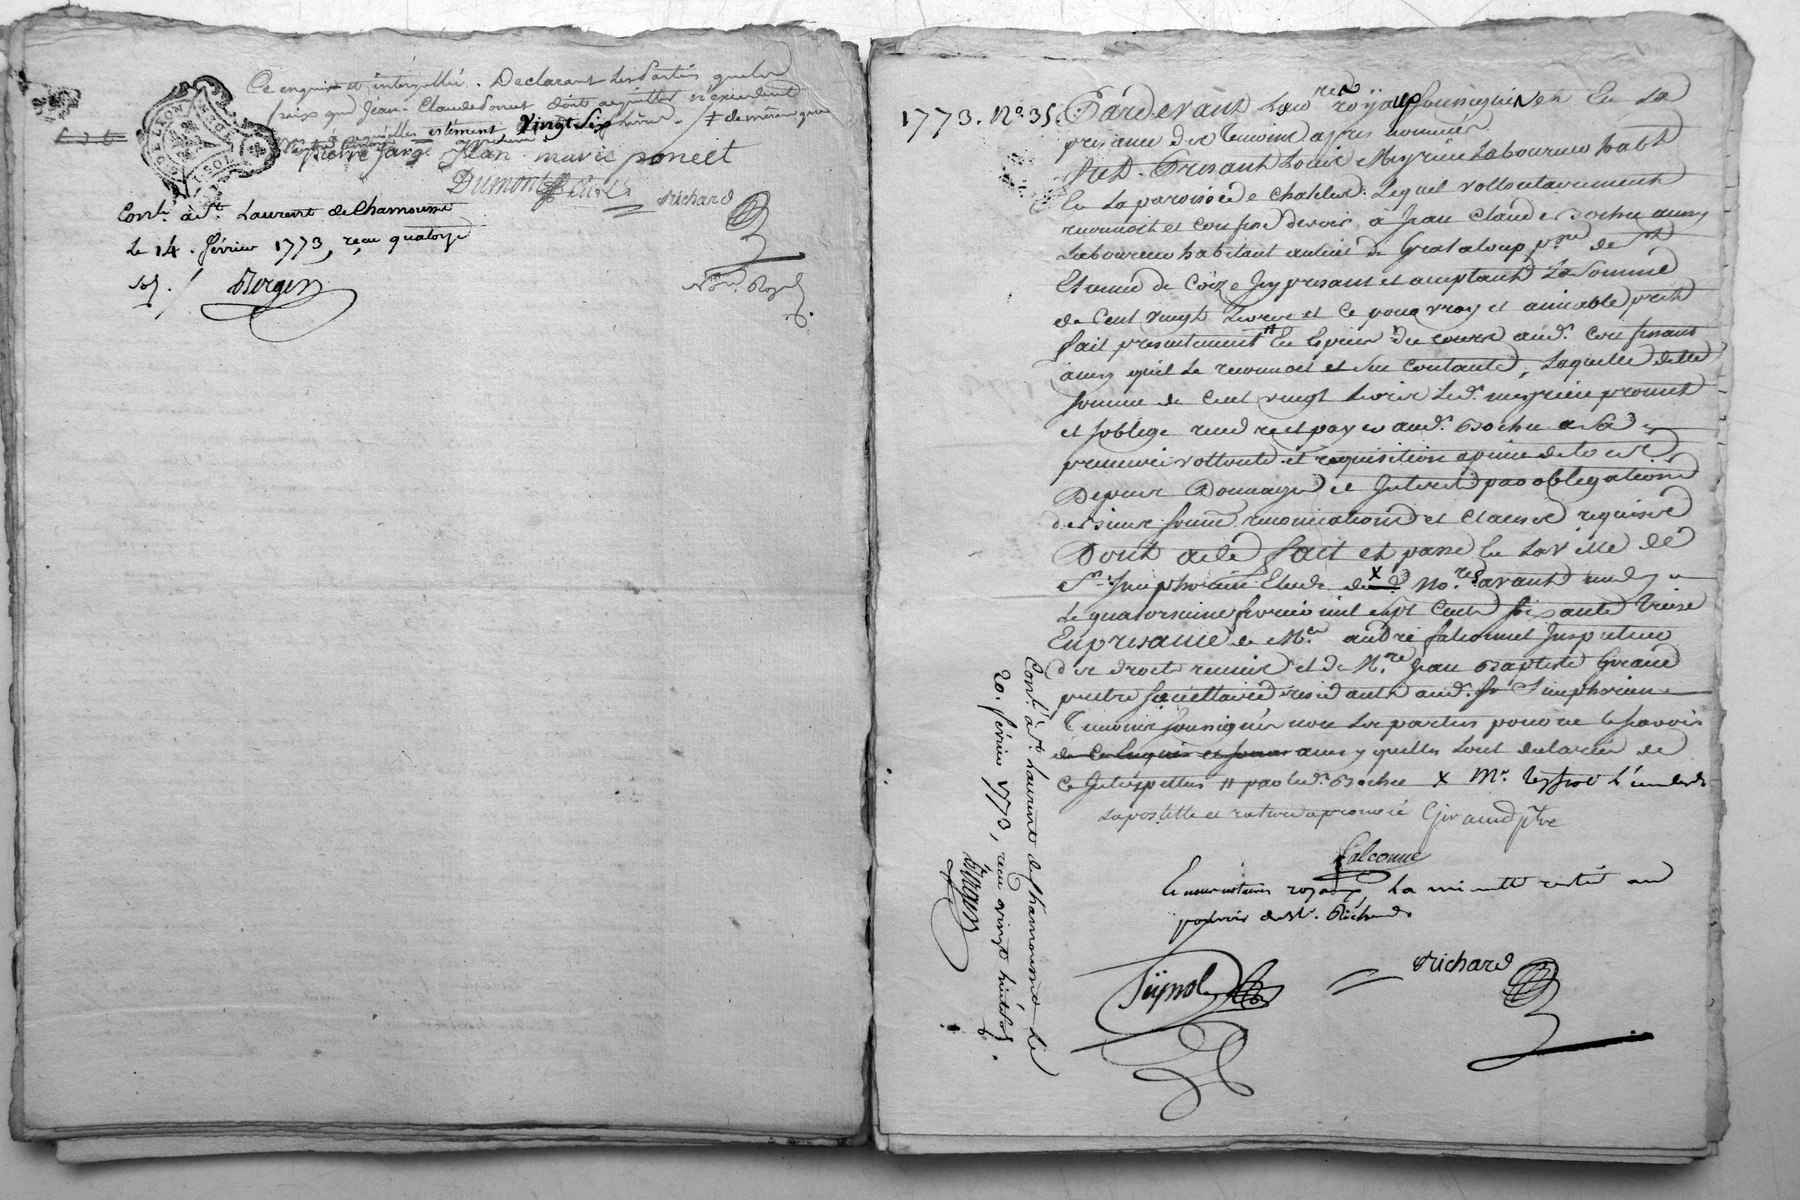 Ce enquis et interpellé. Declarant Les Parties que les
faix que Jean-Claude Poncet
vingt six # de même que
Pierre farge Jean marie poncet
Dumont richard
Conlé à St. Laurent de Chamousset
Le 14. février 1773, reçu quatorze
sols. Bergen
No.re Royal
1773. No. 35. Pardevant Les no.res royaux soussignés Et En La
presance des Temoins apres nommés
fut Presant Louis Meyrieu Laboureur habt
En La paroisse de Chatelus Lequel vollontairement
reconnoit et confesse devoir a Jean Claude Bochu aussy
Laboureur habitant au lieu de Grataloup p.sse de St
Etienne de Coize Icy presant et acceptant La Somme
de Cent vingt Livres et ce pour vray et aimable prest
fait presentement # En Especes du cours aud. confessant
ainsy qu'il Le reconnoit et s'en contante, Laquelle dette
somme de Cent vingt Livres Led. meyrieu promet
et soblige rendre et payer aud. Bochu a Sa
premiere vollonté et requisition a peine de tous
Depens Domages et Interets par obligations
soumissions renonciations et clauses requises
Dont acte fait et passé En La ville de
St. Simphorien Etude de X no.res avant midy
Le quatorzieme fevrier mil sept Cent soixante treize
En presance de Me. andré falconnet Inspecteur
des droits reunis et de M.re Jean Baptiste Giraud
pretre societtaire residants aud. St Simphorien
Temoins soussignés non Les parties pour ne le sçavoir
de ce Enquis et sommés ainsy quelles l'ont declaré de
ce Interpellés # par led. Bochu X Mr. Seynol L'un des
Lapostille et rature approuvée Giraud ptre
falconne
Et nous notaires royaux, La minutte restée au
pouvoir de Mr. Richard
Seynol richard
Conlé à St. Laurent de Chamousset Le
20. février 1773, reçu vingt huit sols.
Bergen